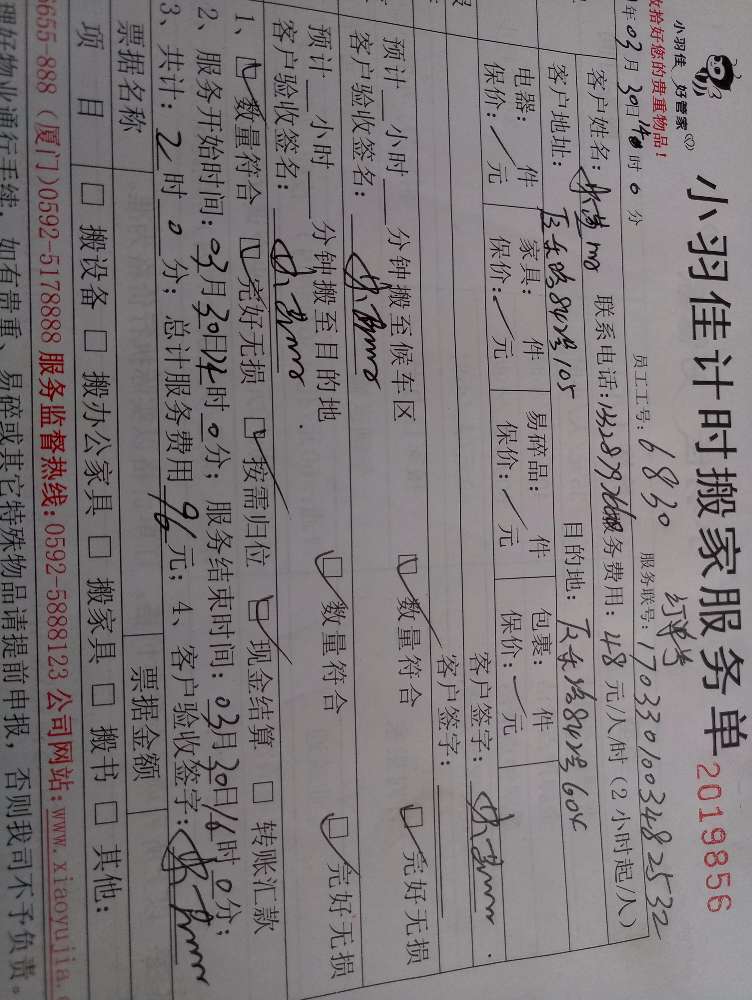 小羽佳 好管家
小羽佳计时搬家服务单 2019856
收拾好您的贵重物品！
员工工号：6830 服务联号：1703301003482532
年03月30日14时0分
客户姓名： 联系电话： 服务费用：48元/人/时（2小时起/人）
客户地址： 842号105 目的地： 842号604
电器： 件 家具： 件 易碎品： 件 包裹： 件
保价：/元 保价：/元 保价：/元 保价：/元
客户签字：
客户签字：
预计 小时 分钟搬至候车区 数量符合 完好无损
客户验收签名：
预计 小时 分钟搬至目的地. 数量符合 完好无损
客户验收签名：
1、 数量符合 完好无损 按需归位 现金结算 转账汇款
2、服务开始时间：03月30日14时0分；服务结束时间：03月30日16时0分；
3、共计：2时0分；总计服务费用96元；4、客户验收签字：
票据名称 票据金额
项目 搬设备 搬办公家具 搬家具 搬书 其他：
655-888（厦门）0592-5178888 服务监督热线：0592-5888123 公司网站：www.xiaoyujia.
理好物业通行手续，如有贵重、易碎或其它特殊物品请提前申报，否则我司不予负责。